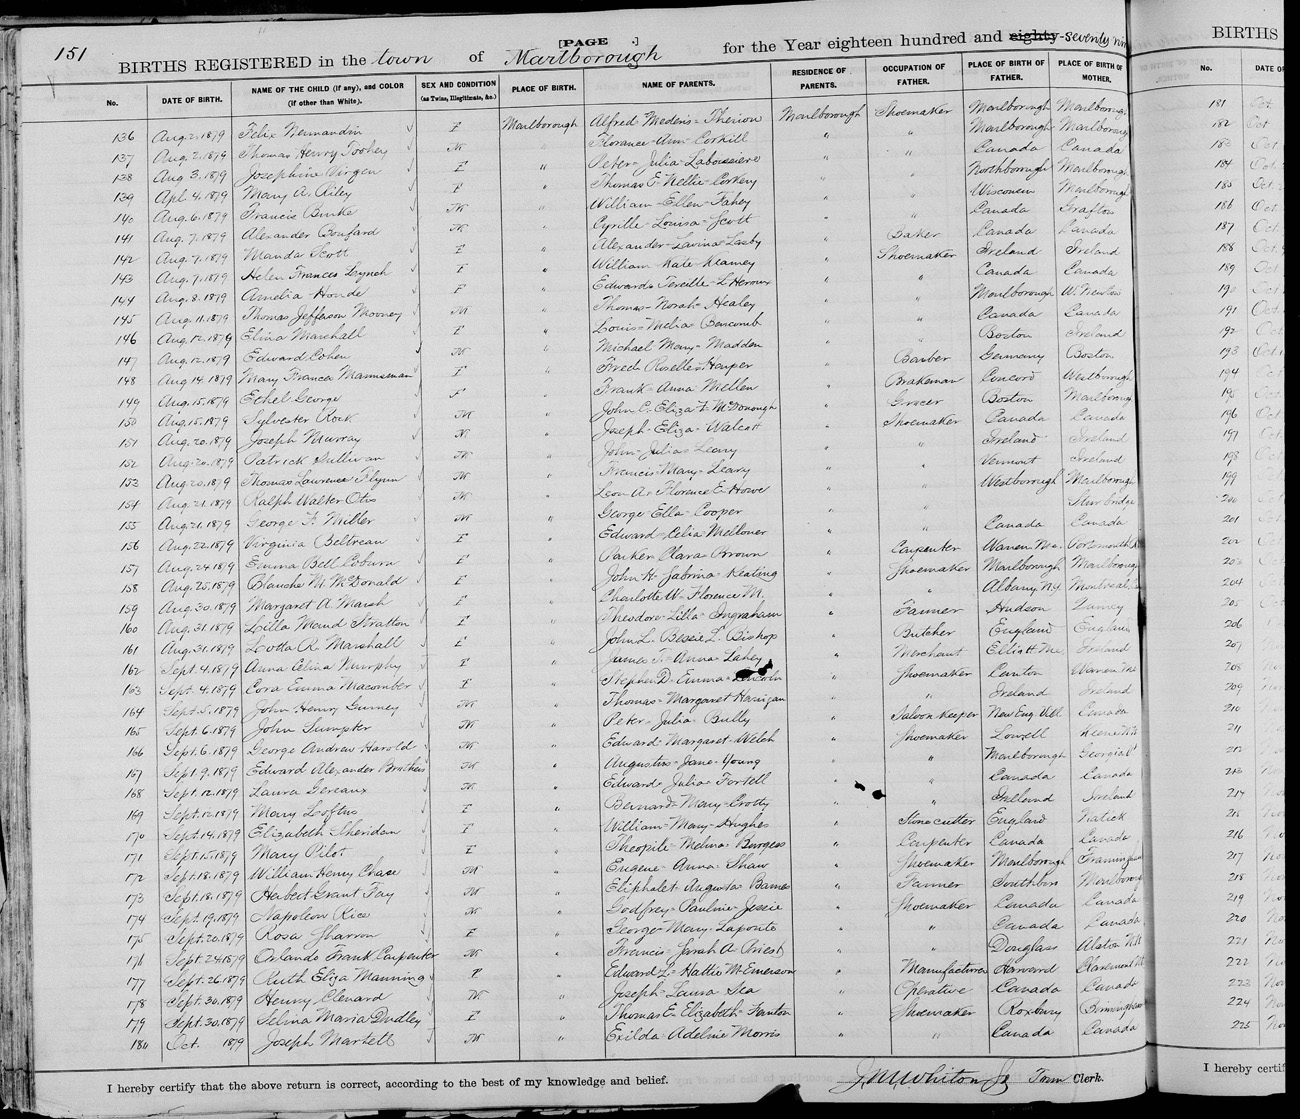 151
[PAGE ]
BIRTHS REGISTERED in the town of Marlborough for the Year eighteen hundred and eighty-seventy nin
No. DATE OF BIRTH. NAME OF THE CHILD (if any), and COLOR (if other than White). SEX AND CONDITION (as Twins, Illegitimate, &c.) PLACE OF BIRTH. NAME OF PARENTS. RESIDENCE OF PARENTS. OCCUPATION OF FATHER. PLACE OF BIRTH OF FATHER. PLACE OF BIRTH OF MOTHER.
136 Aug. 2, 1879 Felix Normandin F Marlborough Alfred Mederis Marlborough Shoemaker Marlborough Marlborough
137 Aug. 2, 1879 Thomas Henry Toohey M " Florance Ann Corkill " " Marlborough Marlborough
138 Aug 3, 1879 Josephine Virgen F " Peter Julia Laboussiere " " Canada Canada
139 Apl. 4, 1879 Mary A. Riley F " Thomas E Nellie Corkery " " Northborough Marlborough
140 Aug. 6, 1879 Francis Burke M " William Ellen Fahey " " Wisconsin Marlborough
141 Aug. 7, 1879 Alexander Boufard M " Cyrille Louisa Scott " " Canada Grafton
142 Aug. 7, 1879 Manda Scott F " Alexander Lavina " Baker Canada Canada
143 Aug. 7, 1879 Helen Frances Lynch F " William Kate Kearney " Shoemaker Ireland Ireland
144 Aug. 8, 1879 Amelia Houde F " Edward L'Heroux " " Canada Canada
145 Aug. 11, 1879 Thomas Jefferson Mooney M " Thomas Norah Healey " " Marlborough W. Newton
146 Aug. 12, 1879 Elina Marshall F " Louis Melia " " Canada Canada
147 Aug. 12, 1879 Edward Cohen M " Michael Mary Madden " " Boston Ireland
148 Aug 14, 1879 Mary Frances F " Fred Roselle Harper " Barber Germany Boston
149 Aug. 15, 1879 Ethel George F " Frank Anna Mellen " Brakeman Concord Westborough
150 Aug. 15, 1879 Sylvester Rock M " John C. Eliza F. McDonough " Grocer Boston Marlborough
151 Aug. 20, 1879 Joseph Murray M " Joseph Eliza Walcott " Shoemaker Canada Canada
152 Aug. 20, 1879 Patrick Sullivan M " John Julia Leary " " Ireland Ireland
153 Aug. 20, 1879 Thomas Lawrence Flynn M " Francis Mary Leary " " Vermont Ireland
154 Aug. 21, 1879 Ralph Walter Otis M " Leon A. Florence E. Howe " " Westborough Marlborough
155 Aug. 21, 1879 George F. Miller M " George Ella Cooper " " Sturbridge
156 Aug. 22, 1879 Virginia Beltreau F " Edward Celia " " Canada Canada
157 Aug. 24, 1879 Emma Bell Coburn F " Parker Clara Brown " Carpenter Warren Me. Portsmouth
158 Aug. 25, 1879 Blanche M. McDonald F " John H. Sabrina Keating " Shoemaker Marlborough Marlborough
159 Aug. 30, 1879 Margaret A. Marsh F " Charlotte W. Florence M. " " Albany N.Y. Montreal
160 Aug. 31, 1879 Lilla Maud Stratton F " Theodore Lilla Ingraham " Farmer Hudson
161 Aug. 31, 1879 Lotta R. Marshall F " John L. Bessie L. Bishop " Butcher England England
162 Sept. 4, 1879 Anna Elina Murphy F " James F. Anna Lahey " Merchant Elliott Me. Ireland
163 Sept. 4, 1879 Cora Emma Macomber F " Stephen D. Emma Lincoln " Shoemaker Canton Warren Me
164 Sept. 5, 1879 John Henry Gurney M " Thomas Margaret Harrigan " " Ireland Ireland
165 Sept. 6, 1879 John Sumpter M " Peter Julia Bully " Saloon Keeper New Eng. Vill. Canada
166 Sept. 6, 1879 George Andrew Harold M " Edward Margaret Welch " Shoemaker Lowell
167 Sept. 9, 1879 Edward Alexander Brothers M " Augustin Jane Young " " Marlborough Georgia Vt
168 Sept. 12, 1879 Laura Gereaux M " Edward Julia Fortell " " Canada Canada
169 Sept. 12, 1879 Mary Loftus F " Bernard Mary Crotty " " Ireland Ireland
170 Sept. 14, 1879 Elizabeth Sheridan F " William Mary Hughes " Stone cutter England Natick
171 Sept. 15, 1879 Mary Pilot F " Theopile Melina Burgess " Carpenter Canada Canada
172 Sept. 18, 1879 William Henry Chase M " Eugene Anna Shaw " Shoemaker Marlborough Framingham
173 Sept. 18, 1879 Herbert Grant Fay M " Eliphalet Augusta Barnes " Farmer Southboro Marlborough
174 Sept. 19, 1879 Napoleon Rice M " Godfrey Pauline Jessie " Shoemaker Canada Canada
175 Sept. 20, 1879 Rosa Sharron F " George Mary Laporite " " Canada Canada
176 Sept. 24, 1879 Orlando Frank Carpenter M " Francis Sarah A. Priest " " Douglass Alston N.H.
177 Sept. 26, 1879 Ruth Eliza Manning F " Edward L. Hattie M. Emerson " Manufacturer Harvard Claremont
178 Sept. 30, 1879 Henry Clenard M " Joseph Laura Sea " Operative Canada Canada
179 Sept. 30, 1879 Selina Maria Dudley F " Thomas E. Elizabeth Fanton " Shoemaker Roxbury Birmingham
180 Oct. 1879 Joseph Martell M " Exilda Adeline Morris " " Canada Canada
I hereby certify that the above return is correct, according to the best of my knowledge and belief. J. M. Whiton Jr Town Clerk.
BIRTHS
No. DATE O
181 Oct.
182 Oct
183 Oct.
184 Oct.
185 Oct.
186 Oct.
187 Oct.
188 Oct.
189 Oct
190 Oct.
191 Oct.
192 Oct.
193 Oct.
194 Oct
195 Oct.
196 Oct.
197 Oct.
198 Oct.
199 Oct
200 Oct
201 Oct
202 Oct
203 Oct
204
205
206
207
208
209
210
211
212
213 No
214 No
215 No
216 No
217 No
218 No
219 No
220 No
221 No
222 No
223 No
224 No
225 No
I hereby certif